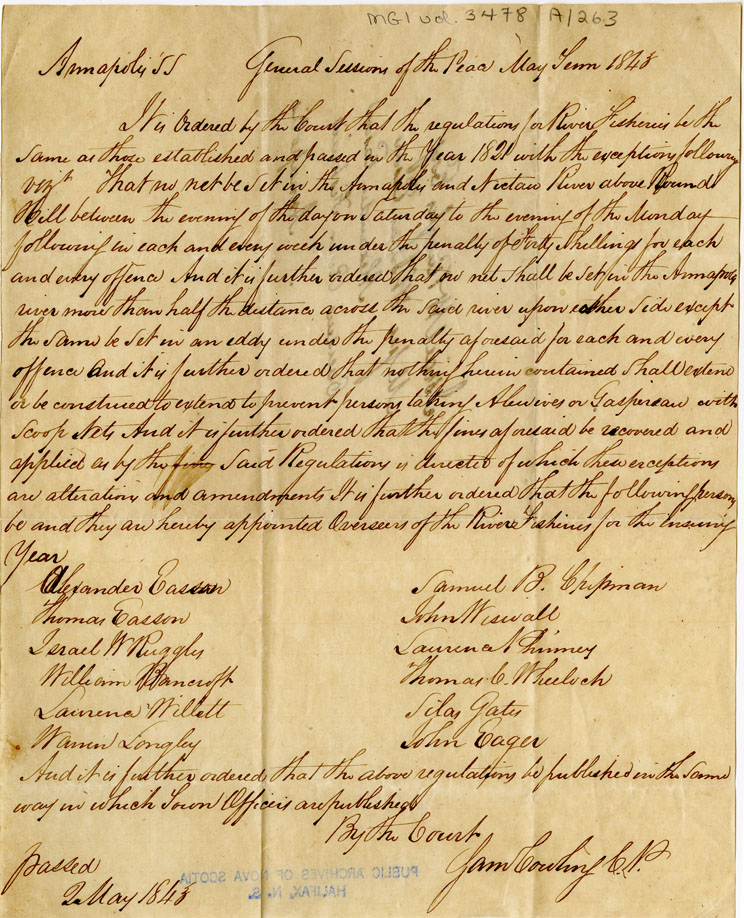 MG1 vol. 3478 A/263
Annapolis SS General Sessions of the Peace May Term 1843
It is Ordered by the Court that the regulations for River Fisheries be the
same as those established and passed in the Year 1821 with the exceptions following
vizt That no net be set in the Annapolis and Nictau River above Round
Hill between the evening of the day on Saturday to the evening of the Monday
following in each and every week under the penalty of Forty Shillings for each
and every offence And it is further ordered that no net shall be set in the Annapolis
river more than half the distance across the said river upon either side except
the same be set in an eddy under the penalty aforesaid for each and every
offence And it is further ordered that nothing herein contained shall extend
or be construed to extend to prevent persons taking Alewives or Gaspereau with
Scoop Nets And it is further ordered that the fines aforesaid be recovered and
applied as by the Said Regulations is directed of which these exceptions
are alterations and amendments It is further ordered that the following persons
be and they are hereby appointed Overseers of the River Fisheries for the ensuing
Year
Alexander Easson
Thomas Easson
Israel W Ruggles
William Bancroft
Laurence Willett
Warren Longley
Samuel B. Chipman
John Wiswall
Laurence Phinney
Thomas C. Wheelock
Silas Gates
John Eager
And it is further ordered that the above regulations be published in the same
way in which Town Officers are published
By the Court
passed
2 May 1843
Jam Cowling C.P.
PUBLIC ARCHIVES OF NOVA SCOTIA
HALIFAX, N. S.